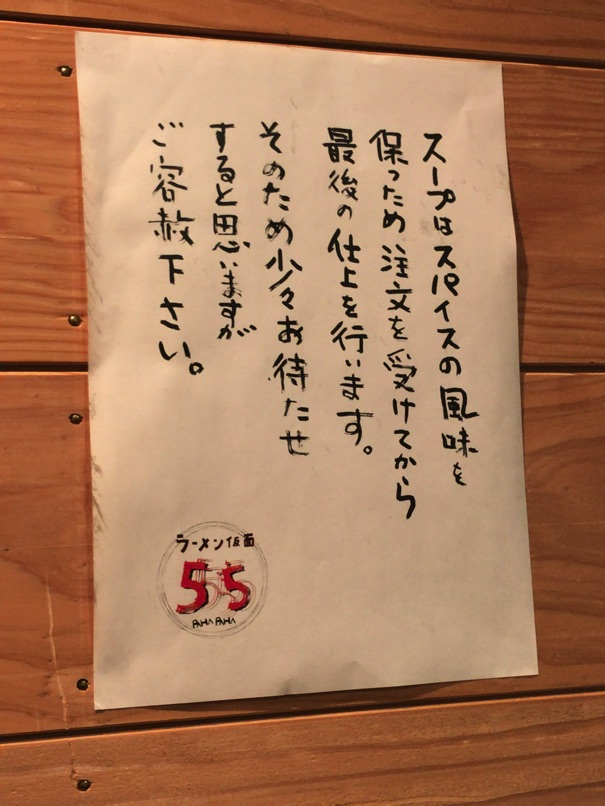 スープはスパイスの風味を
保つため注文を受けてから
最後の仕上を行います。
そのため少々お待たせ
すると思いますが
ご容赦下さい。
ラーメン仮面
55
PAHA PAHA